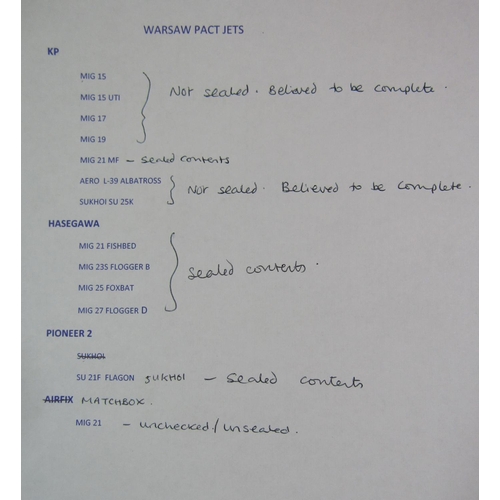 WARSAW PACT JETS
KP
MIG 15
MIG 15 UTI
MIG 17
MIG 19
Not sealed. Believed to be complete.
MIG 21 MF – sealed contents
AERO L-39 ALBATROSS
SUKHOI SU 25K
Not sealed. Believed to be complete.
HASEGAWA
MIG 21 FISHBED
MIG 23S FLOGGER B
MIG 25 FOXBAT
MIG 27 FLOGGER D
sealed contents.
PIONEER 2
SUKHOI
SU 21F FLAGON SUKHOI – sealed contents
AIRFIX MATCHBOX.
MIG 21 – unchecked/unsealed.